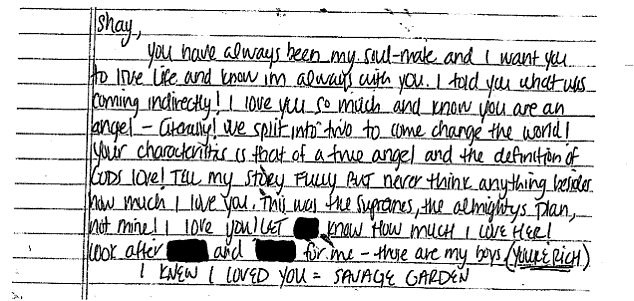 Shay,
you have always been my soul-mate and I want you
to live life and know im always with you. I told you what was
coming indirectly! I love you so much and know you are an
angel - Literally! We split into two to come change the world!
your characteristics is that of a true angel and the definition of
GODS LOVE! TELL my STORY FULLY BUT never think anything besides
how much I love you. This was the supremes, the almightys plan,
not mine! I love you! LET know HOW MUCH I LOVE HER!
look after and for me - those are my boys (YOU'RE RICH)
I KNEW I LOVED YOU = SAVAGE GARDEN